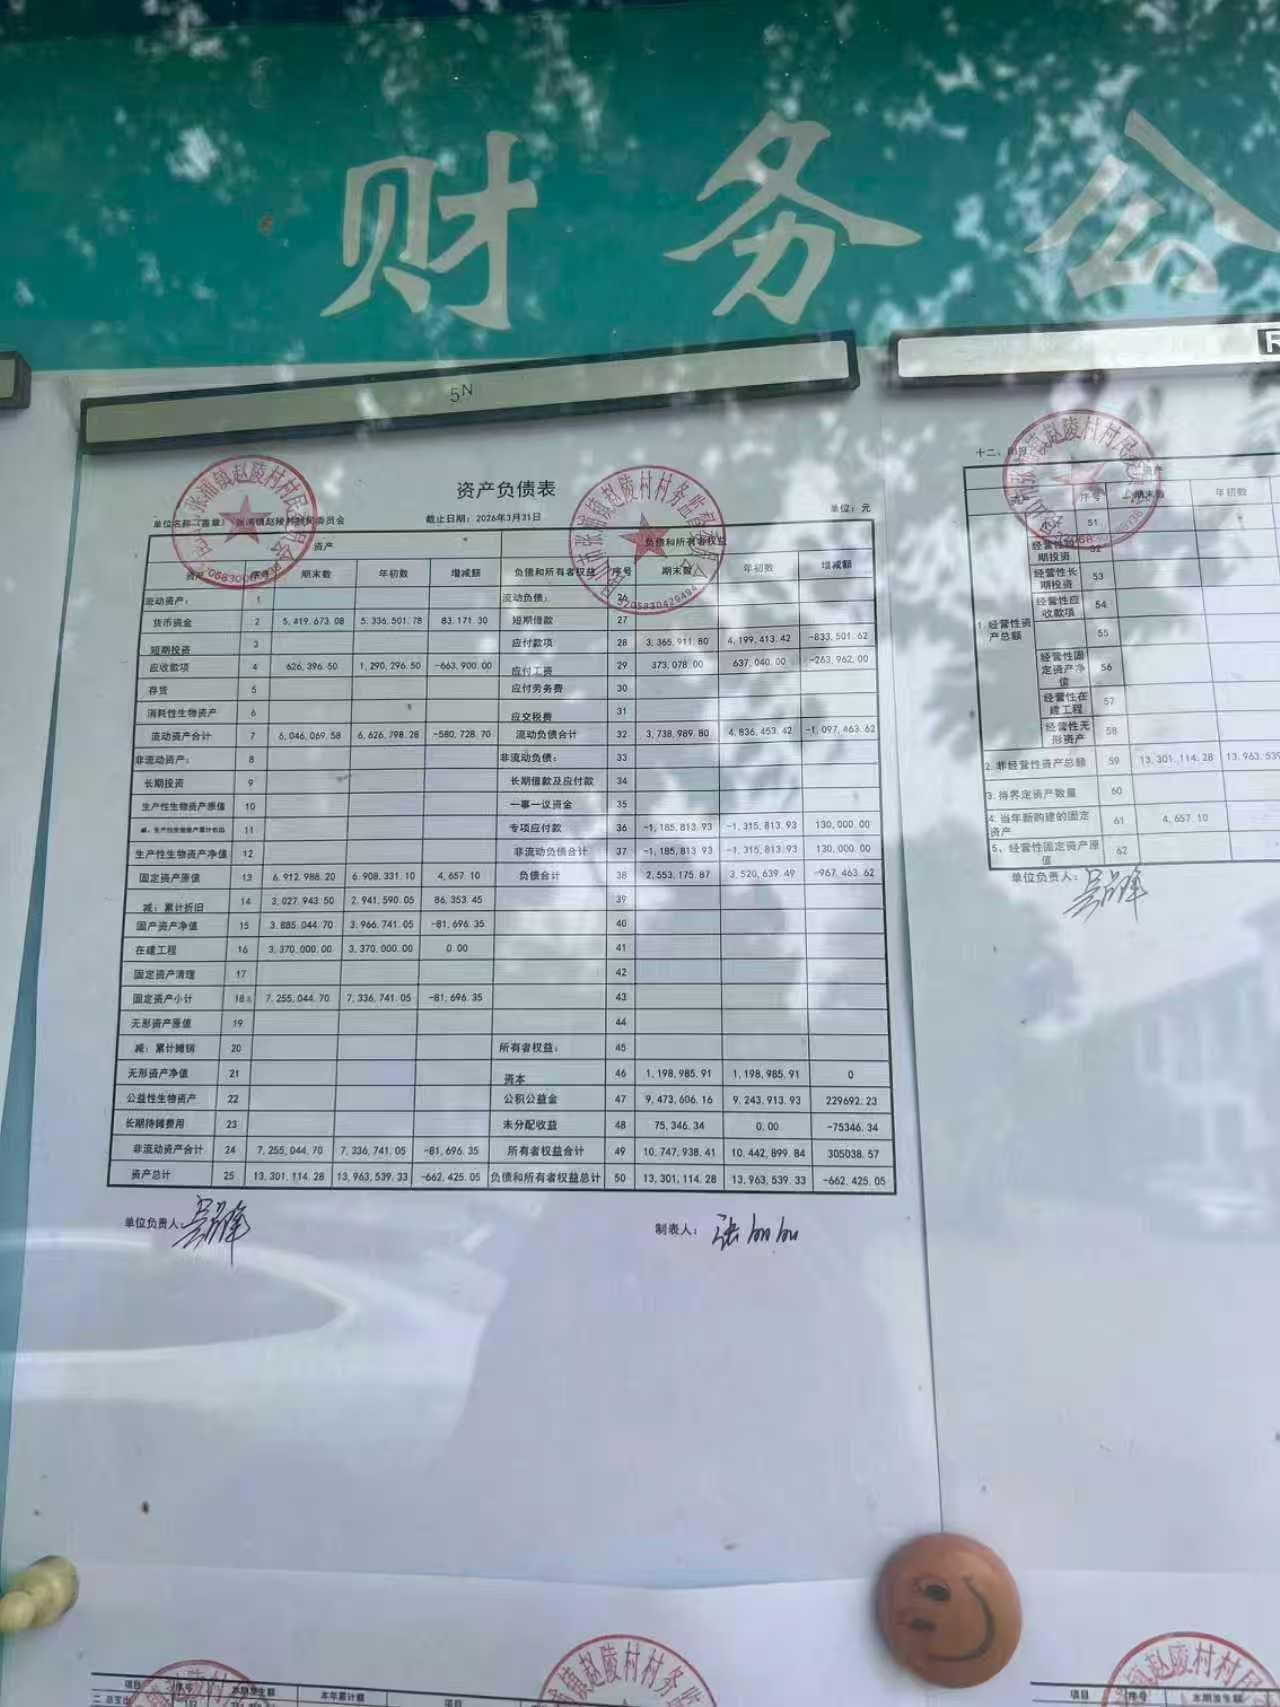 财务公
5N
资产负债表
单位名称（盖章） 张浦镇赵陵村村民委员会 截止日期：2026年3月31日 单位：元
资产 负债和所有者权益
资产 序号 期末数 年初数 增减额 负债和所有者权益 序号 期末数 年初数 增减额
流动资产： 1 流动负债： 26
货币资金 2 5,419,673.08 5,336,501.78 83,171.30 短期借款 27
短期投资 3 应付款项 28 3,365,911.80 4,199,413.42 -833,501.62
应收款项 4 626,396.50 1,290,296.50 -663,900.00 应付工资 29 373,078.00 637,040.00 -263,962.00
存货 5 应付劳务费 30
消耗性生物资产 6 应交税费 31
流动资产合计 7 6,046,069.58 6,626,798.28 -580,728.70 流动负债合计 32 3,738,989.80 4,836,453.42 -1,097,463.62
非流动资产： 8 非流动负债： 33
长期投资 9 长期借款及应付款 34
生产性生物资产原值 10 一事一议资金 35
减：生产性生物资产累计折旧 11 专项应付款 36 -1,185,813.93 -1,315,813.93 130,000.00
生产性生物资产净值 12 非流动负债合计 37 -1,185,813.93 -1,315,813.93 130,000.00
固定资产原值 13 6,912,988.20 6,908,331.10 4,657.10 负债合计 38 2,553,175.87 3,520,639.49 -967,463.62
减：累计折旧 14 3,027,943.50 2,941,590.05 86,353.45 39
固产资产净值 15 3,885,044.70 3,966,741.05 -81,696.35 40
在建工程 16 3,370,000.00 3,370,000.00 0.00 41
固定资产清理 17 42
固定资产小计 18 7,255,044.70 7,336,741.05 -81,696.35 43
无形资产原值 19 44
减：累计摊销 20 所有者权益： 45
无形资产净值 21 资本 46 1,198,985.91 1,198,985.91 0
公益性生物资产 22 公积公益金 47 9,473,606.16 9,243,913.93 229692.23
长期待摊费用 23 未分配收益 48 75,346.34 0.00 -75346.34
非流动资产合计 24 7,255,044.70 7,336,741.05 -81,696.35 所有者权益合计 49 10,747,938.41 10,442,899.84 305038.57
资产总计 25 13,301,114.28 13,963,539.33 -662,425.05 负债和所有者权益总计 50 13,301,114.28 13,963,539.33 -662,425.05
单位负责人： 制表人：
张浦镇赵陵村村民委员会
张浦镇赵陵村村务监督委员会
3205830429494
十二、
序号 期末数 年初数
51
经营性短期投资 52
经营性长期投资 53
经营性应收款项 54
1.经营性资产总额 55
经营性固定资产净值 56
经营性在建工程 57
经营性无形资产 58
2.非经营性资产总额 59 13,301,114.28 13,963,539
3.待界定资产数量 60
4.当年新购建的固定资产 61 4,657.10
5、经营性固定资产原值 62
单位负责人：
项目 序号 本期发生额 本年累计额 项目
镇赵陵村村务
项目 序号 本期发生额
赵陵村村民